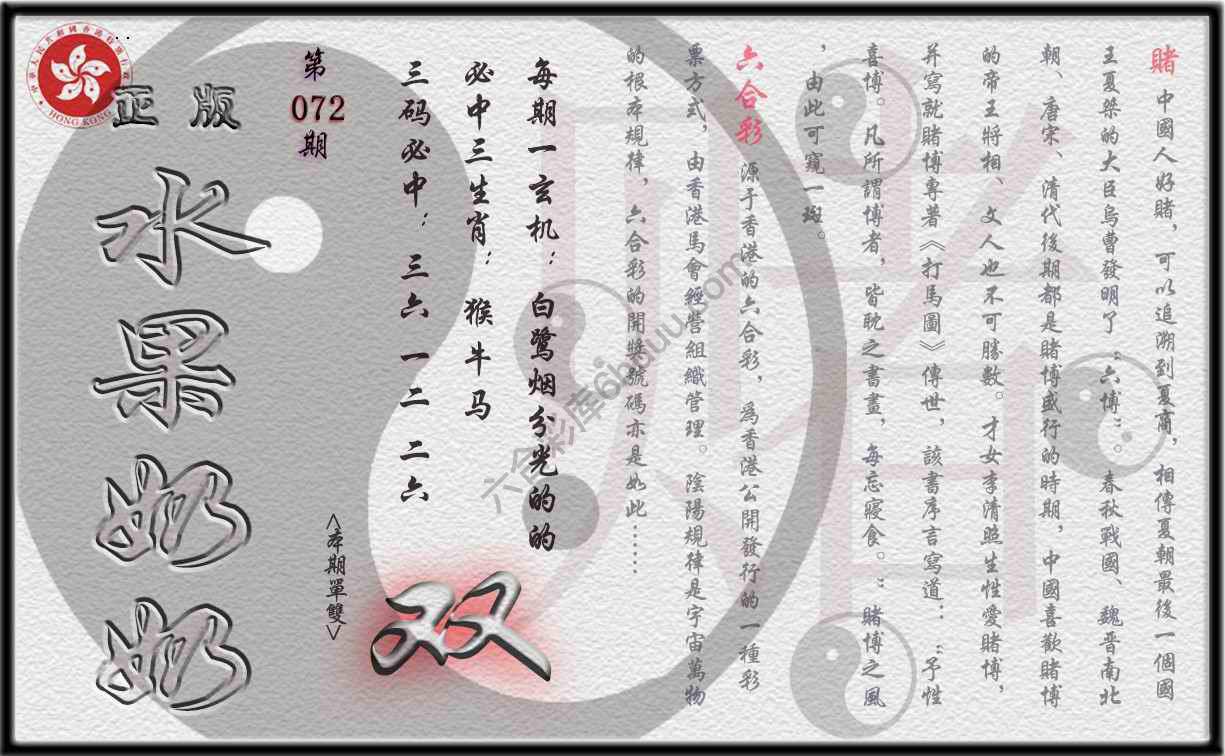 賭 中國人好賭，可以追溯到夏商，相傳夏朝最後一個國
王夏桀的大臣烏曹發明了“六博”。春秋戰國、魏晋南北
朝、唐宋、清代後期都是賭博盛行的時期，中國喜歡賭博
的帝王將相、文人也不可勝數。才女李清照生性愛賭博，
并寫就賭博專著《打馬圖》傳世，該書序言寫道：：“予性
喜博。凡所謂博者，皆耽之書畫，每忘寢食。”賭博之風
，由此可窺一斑。
六合彩 源于香港的六合彩，為香港公開發行的一種彩
票方式，由香港馬會經營組織管理。陰陽規律是宇宙萬物
的根本規律，六合彩的開獎號碼亦是如此……
每期一玄机：白鹭烟分光的的
必中三生肖：猴牛马
三码必中：三六 一二 二六
<本期單雙>
双
第
072
期
正版
水果奶奶
中華人民共和國香港特別行政區
HONG KONG
六合彩库6hduu.com
賭